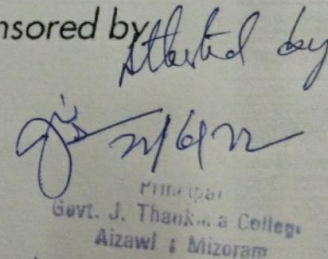 nsored by
Attested by
Principal
Govt. J. Thank a College
Aizawl : Mizoram